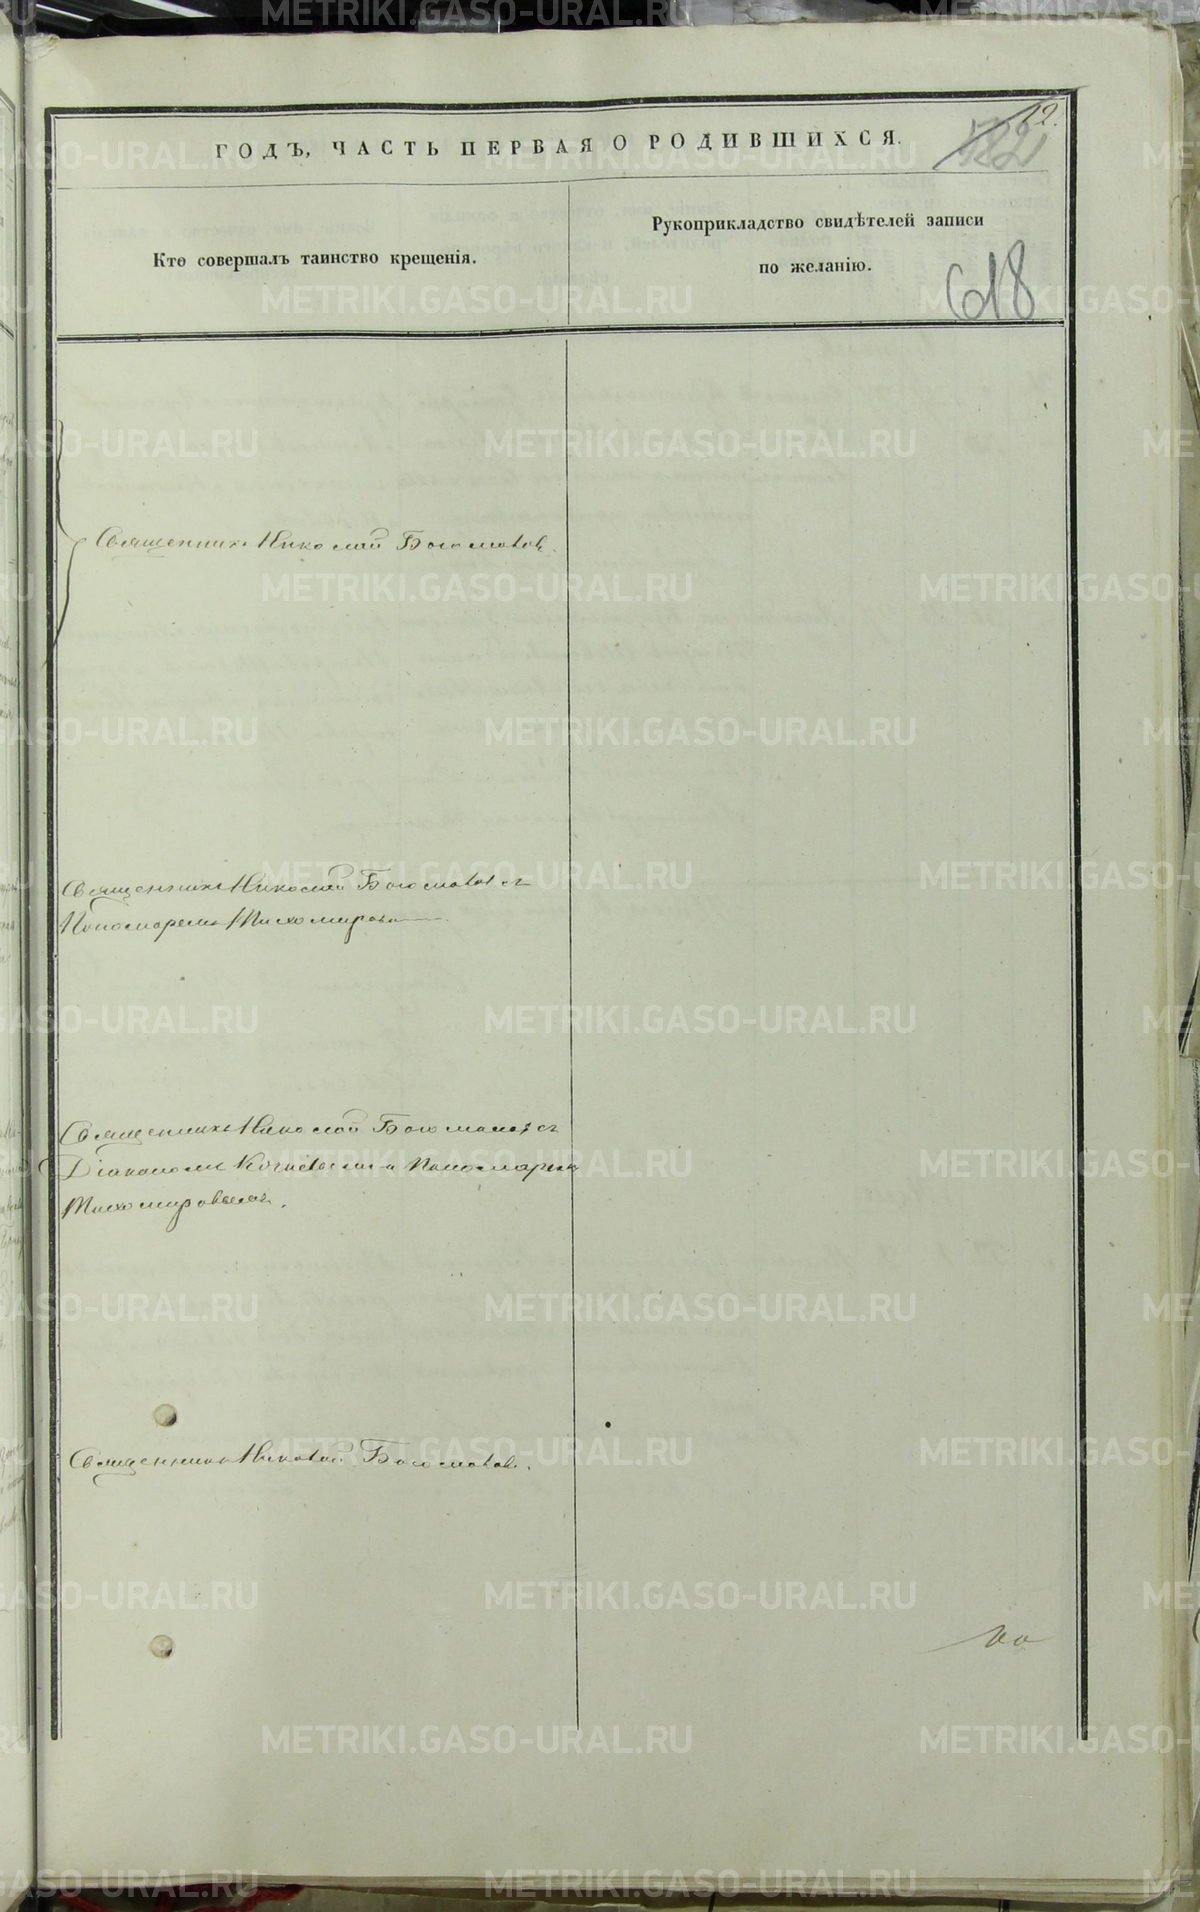 12.
ГОДЪ, ЧАСТЬ ПЕРВАЯ О РОДИВШИХСЯ.
Кто совершалъ таинство крещенія.
Рукоприкладство свидѣтелей записи
по желанію.
618
Священникъ Николай Богомолов
Священникъ Николай Богомолов съ
Пономаремъ Тихомировы
Священникъ Николай Богомолов съ
Діакономъ и Пономаремъ
Тихомировымъ.
Священникъ Николай Богомоловъ.
METRIKI.GASO-URAL.RU